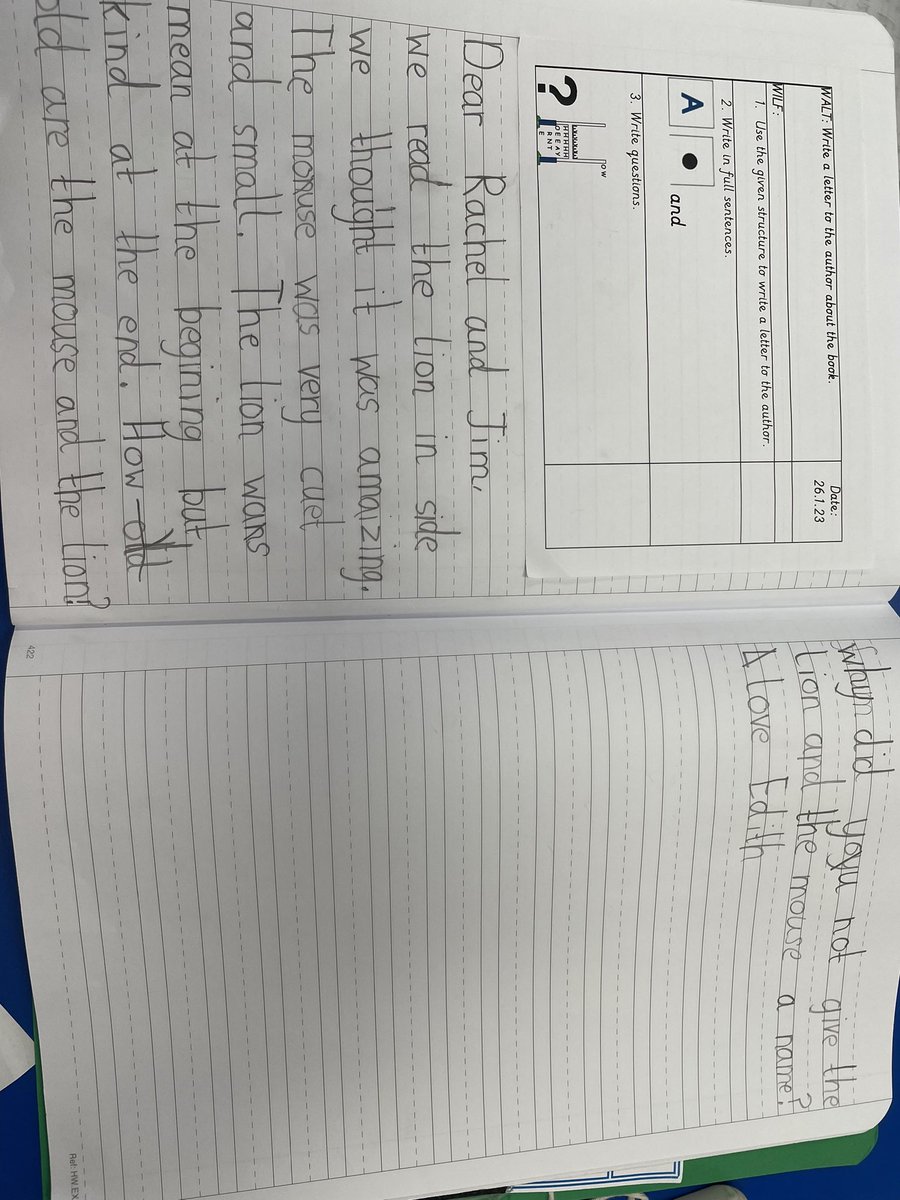 WALT: Write a letter to the author about the book.
Date:
26.1.23
WILF:
1. Use the given structure to write a letter to the author.
2. Write in full sentences.
A
and
3. Write questions.
?
Dear Rachel and Jim,
we read the lion in side
we thought it was amaizing.
The mouse was very cuet
and small. The lion wans
mean at the begining but
kind at the end. How old
old are the mouse and the lion?
whyn did you not give the
lion and the mouse a name?
love Edith
422
Ref: HW.EX